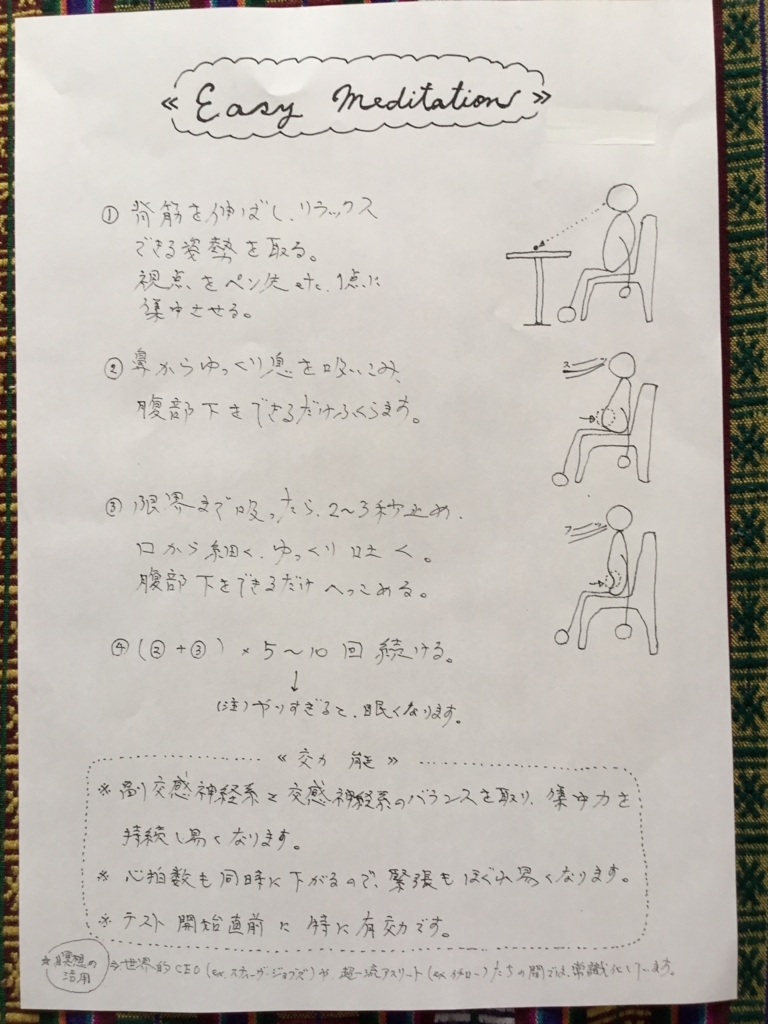 ≪ Easy Meditation ≫
① 背筋を伸ばし、リラックス
できる姿勢を取る。
視点をペン先etc. 1点に
集中させる。
② 鼻からゆっくり息を吸いこみ、
腹部下をできるだけふくらます。
スーッ
③ 限界まで吸ったら、2〜3秒止め、
口から細く、ゆっくり吐く。
腹部下をできるだけへっこめる。
フーッ
④ (② + ③) × 5〜10回 続ける。
↓
(注) やりすぎると、眠くなります。
≪ 効能 ≫
※ 副交感神経系と交感神経系のバランスを取り、集中力を
持続し易くなります。
※ 心拍数も同時に下がるので、緊張もほぐれ易くなります。
※ テスト開始直前に特に有効です。
★ 瞑想の
活用
⇒ 世界的CEO (ex. スティーヴ・ジョブズ) や、超一流アスリート (ex イチロー) たちの間では、常識化しています。